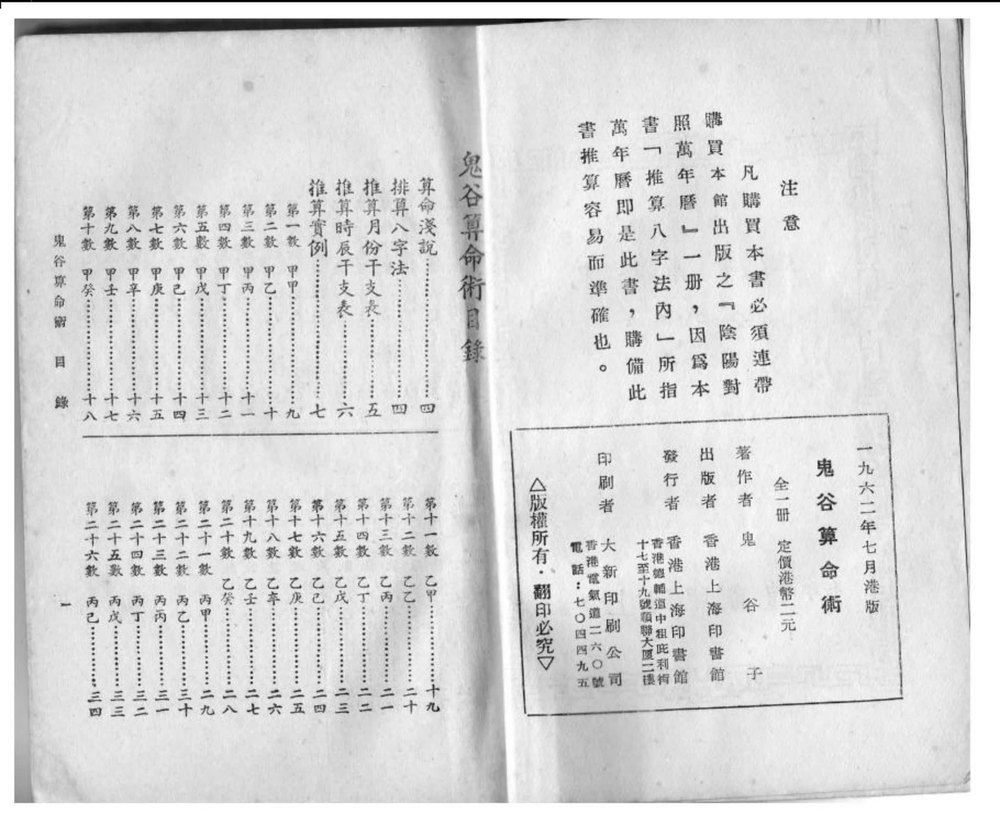 注意
凡購買本書必須連帶
購買本館出版之『陰陽對
照萬年曆』一册，因爲本
書「推算八字法內」所指
萬年曆即是此書，購備此
書推算容易而準確也。
一九六二年七月港版
鬼谷算命術
全一册 定價港幣二元
著作者 鬼谷子
出版者 香港上海印書館
發行者 香港上海印書館
香港德輔道中租庇利街
十七至十九號順聯大厦二樓
印刷者 大新印刷公司
香港電氣道二六〇號
電話：七〇四四九五
△版權所有·翻印必究▽
鬼谷算命術目錄
算命淺說……四
排算八字法……四
推算月份干支表……五
推算時辰干支表……六
推算實例……七
第一數 甲甲……九
第二數 甲乙……十
第三數 甲丙……十一
第四數 甲丁……十二
第五數 甲戊……十三
第六數 甲己……十四
第七數 甲庚……十五
第八數 甲辛……十六
第九數 甲壬……十七
第十數 甲癸……十八
第十一數 乙甲……十九
第十二數 乙乙……二十
第十三數 乙丙……二一
第十四數 乙丁……二二
第十五數 乙戊……二三
第十六數 乙己……二四
第十七數 乙庚……二五
第十八數 乙辛……二六
第十九數 乙壬……二七
第二十數 乙癸……二八
第二十一數 丙甲……二九
第二十二數 丙乙……三十
第二十三數 丙丙……三一
第二十四數 丙丁……三二
第二十五數 丙戊……三三
第二十六數 丙己……三四
鬼谷算命術 目錄 一